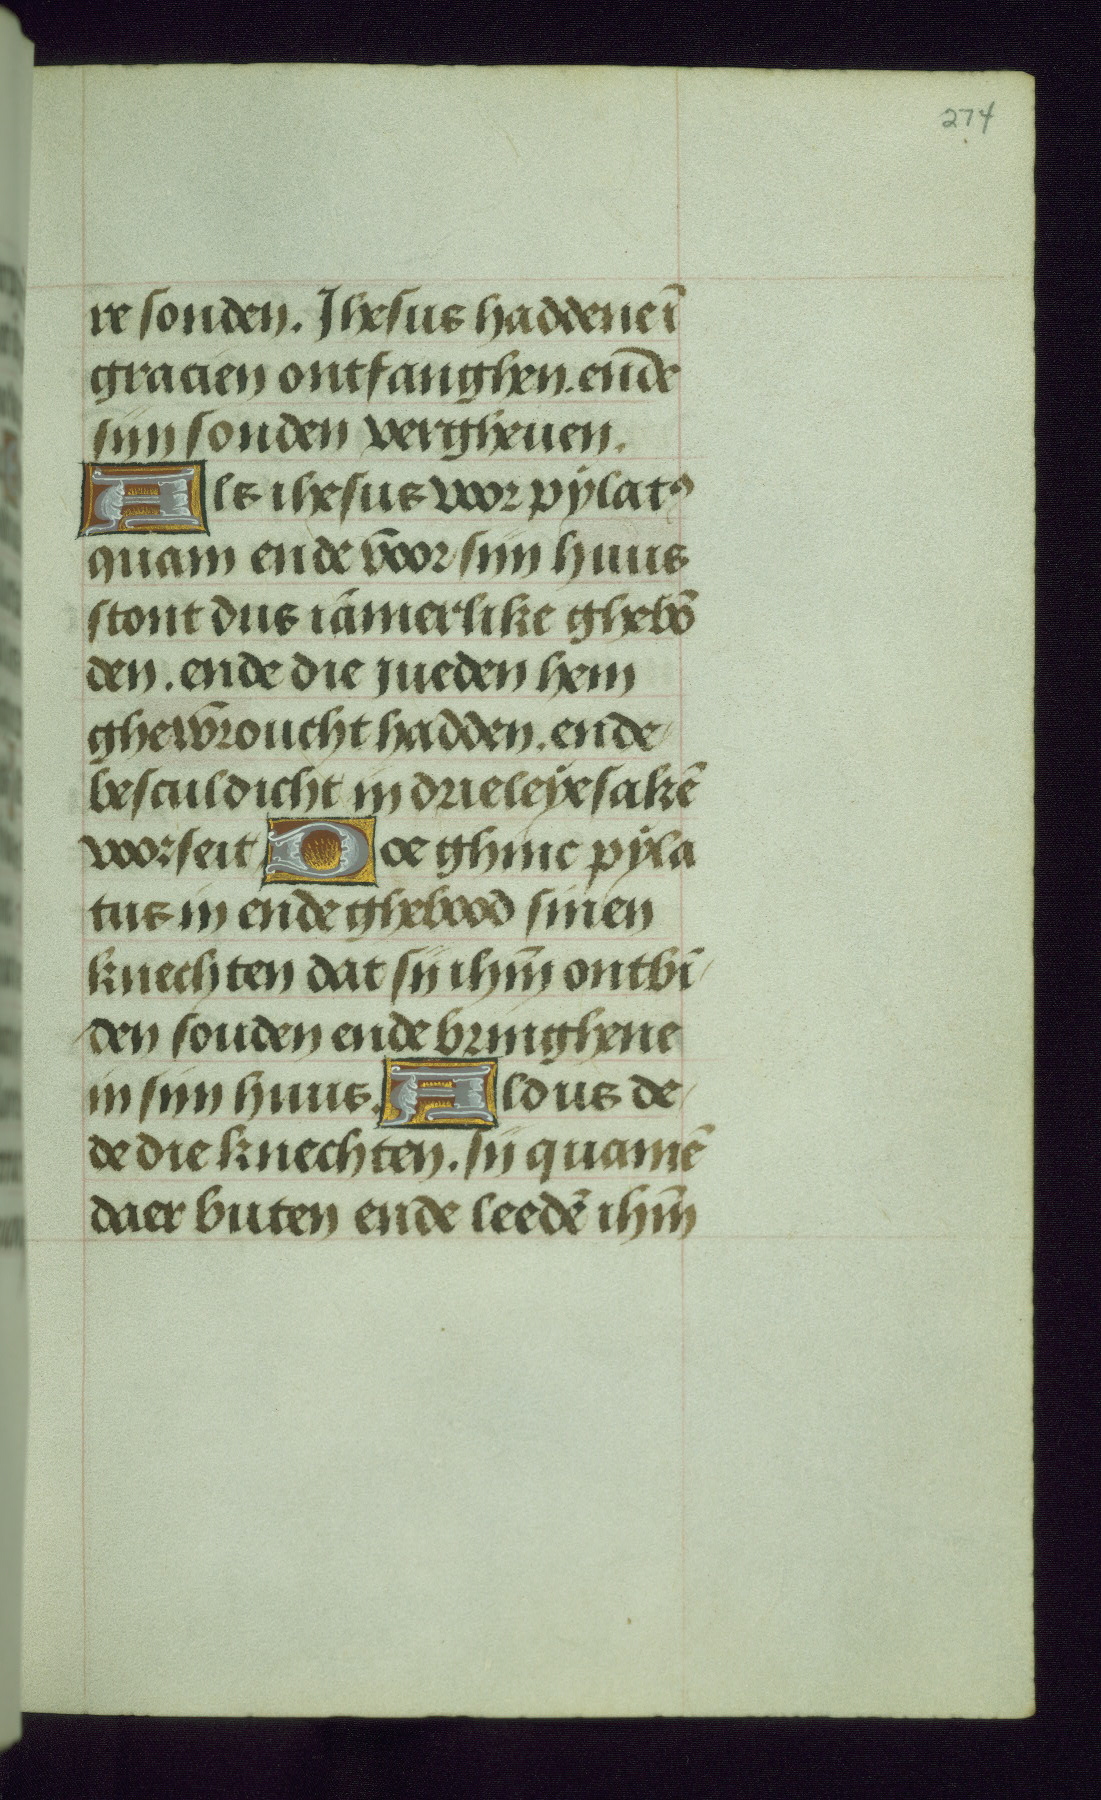 274
re sonden. Jhesus haddene ī
gracien ontfanghen. en̄de
sijn sonden vergheuen.
Als ihesus voor pÿlatꝰ
quam ende v̄oor sijn huus
stont dus iāmerlike ghebō
den. ende die jueden hem
ghew̄roucht hadden. ende
besculdicht in drieleÿe sakē
voorseit Doe ghinc pÿla
tus in ende ghebood sinen
knechten dat sij ihm̄ ontbī
den souden ende bringhene
in sijn huus. Aldus de
de die knechten. sij quamē
daer buten ende leedē ihm̄